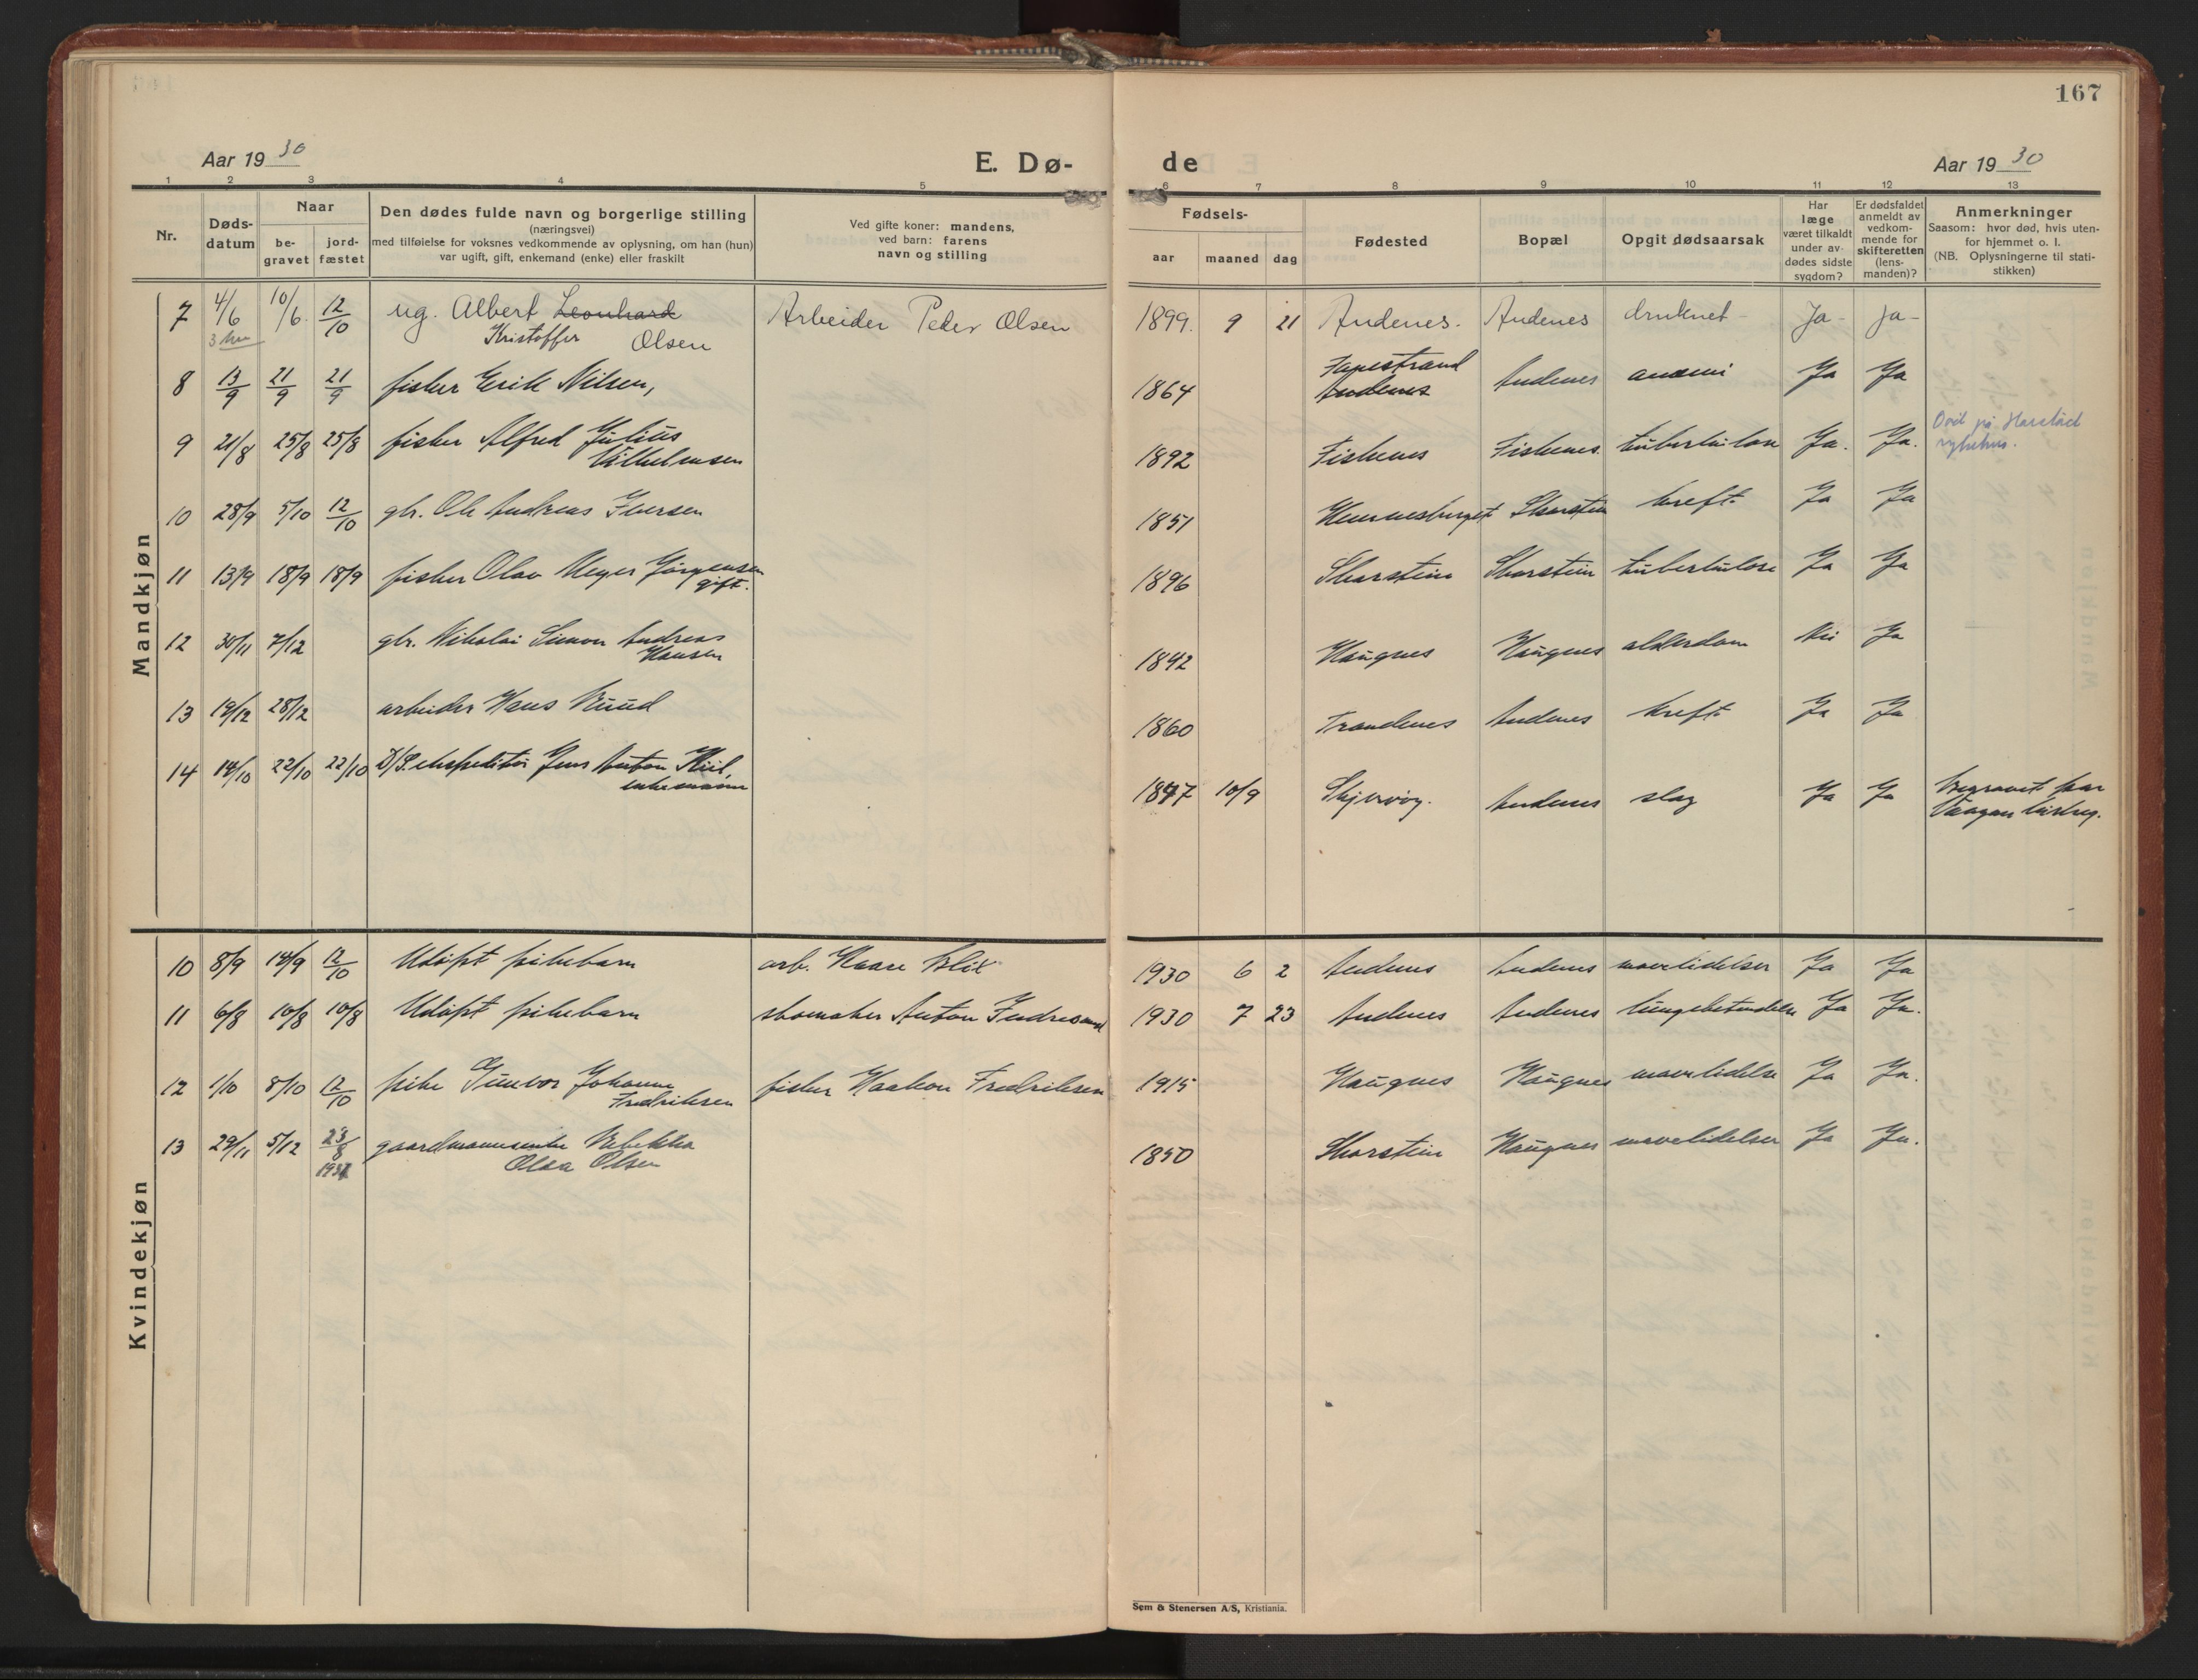 167
Aar 1930
E. Dø-
de
Aar 1930
1 2 3 4 5 6 7 8 9 10 11 12 13
Nr.
Døds-
datum
Naar
be-
gravet
jord-
fæstet
Den dødes fulde navn og borgerlige stilling
(næringsvei)
med tilføielse for voksnes vedkommende av oplysning, om han (hun)
var ugift, gift, enkemand (enke) eller fraskilt
Ved gifte koner: mandens,
ved barn: farens
navn og stilling
Fødsels-
aar maaned dag
Fødested
Bopæl
Opgit dødsaarsak
Har
læge
været tilkaldt
under av-
dødes sidste
sygdom?
Er dødsfaldet
anmeldt av
vedkom-
mende for
skifteretten
(lens-
manden)?
Anmerkninger
Saasom: hvor død, hvis uten-
for hjemmet o. l.
(NB. Oplysningerne til stati-
stikken)
Mandkjøn
7 4/6 10/6. 12/10 ug. Albert Leonhard Arbeider Peder Olsen 1899. 9 21 Andenes. Andenes druknet - Ja - Ja -
Kristoffer Olsen
8 13/9 21/9 21/9 fisker Erik Nilsen, 1864 Andenes Andenes anemi Ja Ja
9 21/8 25/8 25/8 fisker Alfred Julius 1892 Fiskenes Fiskenes. Ja. Ja. Död på Harstad
Vilhelmsen sykehus.
10 28/9 5/10 12/10 gbr. Ole Andreas Iversen 1851 Skarstein kreft. Ja Ja
11 13/9 18/9 18/9 fisker Olav Meyer Jørgensen 1896 Skarstein Skarstein tuberkulose Ja Ja
gift.
12 30/11 7/12 gbr. Nikolai Simon Andreas 1842 Haugnes Haugnes alderdom Nei Ja
Hansen
13 19/12 28/12 arbeider Hans Ruud 1860 Trondenes Andenes kreft. Ja Ja
14 14/10 22/10 22/10 D/S. ekspeditør Jens Anton Kiil, 1847 10/9 Skjervøy. Andenes slag Ja Ja Begravet paa
enkemann Vaagan kirkeg.
Kvindekjøn
10 8/9 14/9 12/10 Udøpt pikebarn arb. Kaare Blix 1930 6 2 Andenes Andenes mavelidelser Ja Ja
11 6/8 10/8 10/8 Udøpt pikebarn skomaker Anton 1930 7 23 Andenes Andenes lungebetendelse Ja Ja.
12 1/10 8/10 12/10 pike Gunvor Johanne fisker Haakon Fredriksen 1915 Haugnes Haugnes mavelidelse Ja Ja.
Fredriksen
13 29/11 5/12 23/8 gaardmannsenke Rebekka 1850 Skarstein Haugnes mavelidelser Ja Ja.
1931 Olava Olsen
Sem & Stenersen A/S, Kristiania.